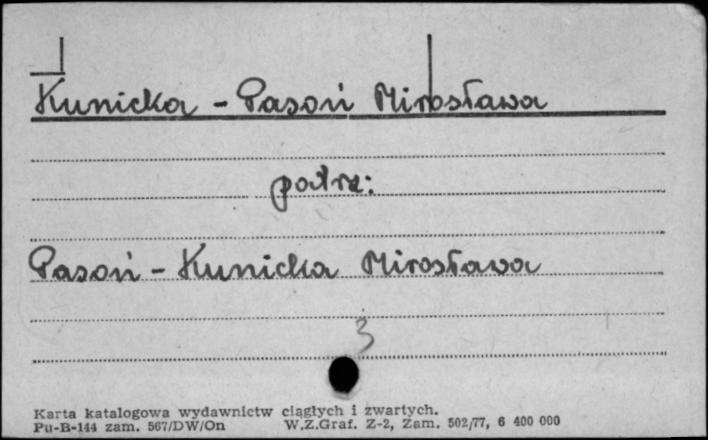 Kunicka - Pasoń Mirosława
patrz:
Pasoń - Kunicka Mirosława
3
Karta katalogowa wydawnictw ciągłych i zwartych.
Pu-B-144 zam. 567/DW/On W.Z.Graf. Z-2, Zam. 502/77, 6 400 000